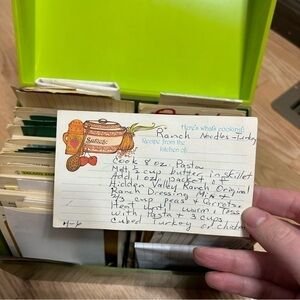 Here's what's cooking:
Ranch Noodles - Turkey
Serves:
Recipe from the
kitchen of:
Cook 8 oz. Pasta
Melt 1/2 cup butter in skillet
Add 1 oz. packet of
Hidden Valley Ranch Original
Ranch Dressing Mix +
1/3 cup peas + carrots.
Heat until warm + Toss
with Pasta + 3 cups
cubed Turkey or chicken
4-6